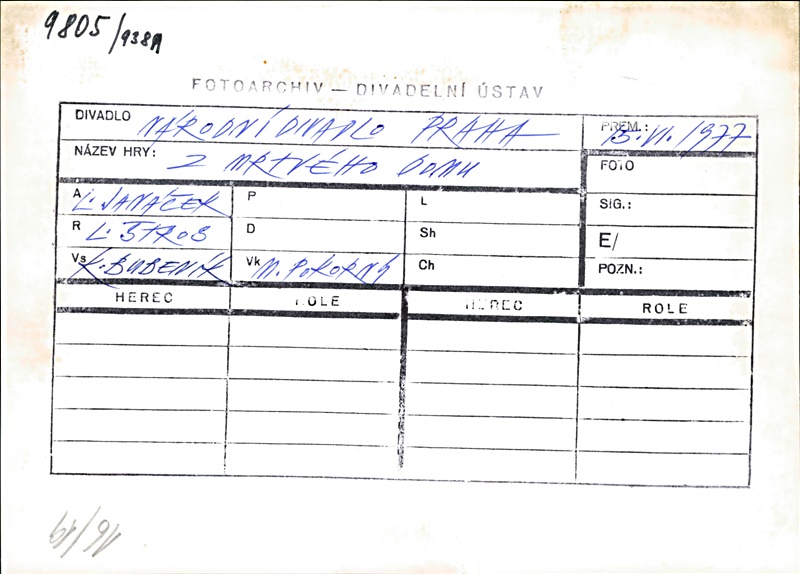 9805/938A
FOTOARCHIV — DIVADELNÍ ÚSTAV
DIVADLO NÁRODNÍ DIVADLO PRAHA
PREM.: 15. VI. 1977
NÁZEV HRY: Z MRTVÉHO DOMU
FOTO
A L. JANÁČEK P L SIG.:
R L. ŠTROS D Sh E/
Vs K. BUBENÍK Vk M. POKORNÝ Ch POZN.:
HEREC ROLE HEREC ROLE
16/19